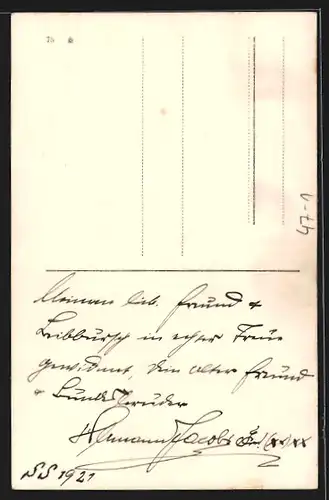 47-1
Meinem lb. Freund &
Leibbursch in echter Treue
gewidmet, Dein alter Freund
& Bundesbruder
Hermann Jacobi
SS 1921